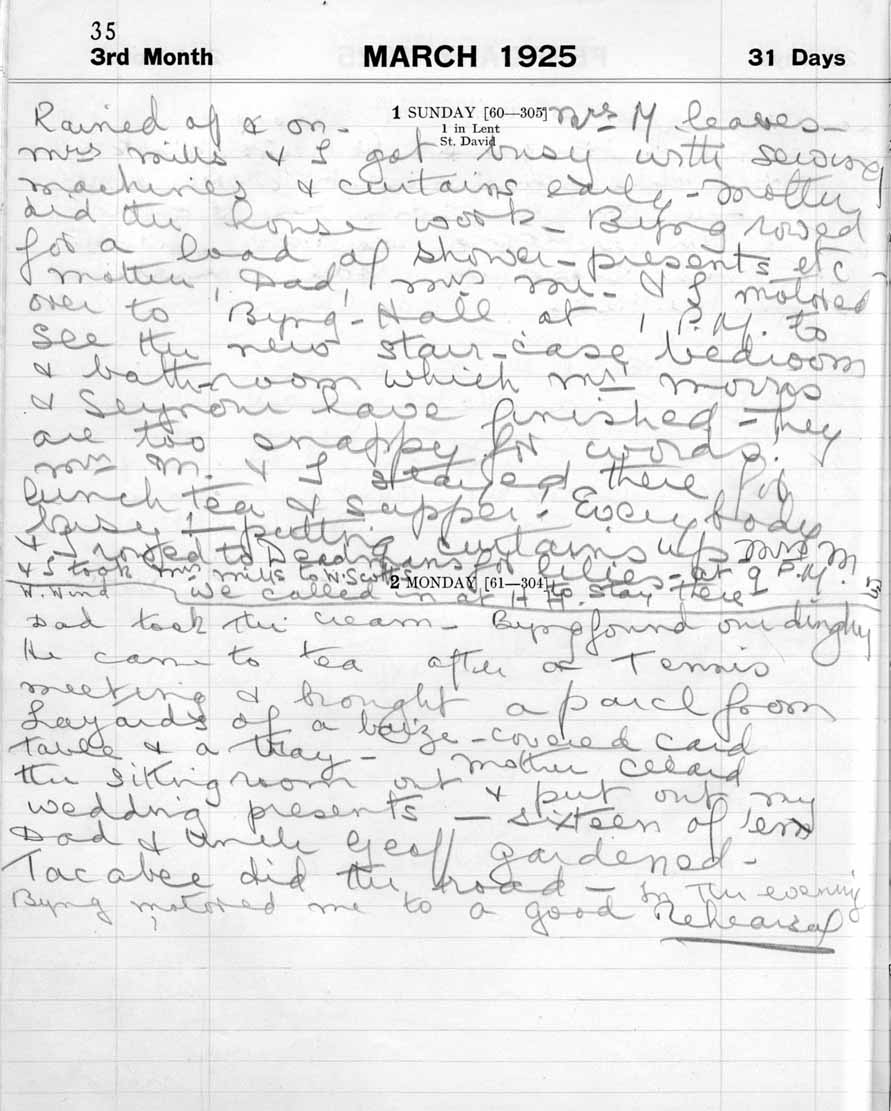 35
3rd Month MARCH 1925 31 Days
1 SUNDAY [60—305]
1 in Lent
St. David
Rained off & on - Mrs M leaves -
Mrs Mills & I got busy with sewing
machines & curtains early - Mother
did the house work - Byng rowed
for a load of shower-presents etc -
Mother, Dad, Mrs M. - & I motored
over to 'Byng-Hall' at 1 P.M. to
see the new stair-case, bedroom
& bath-room which Mr Morris
& Seymour have finished - They
are too snappy for words!
Mrs M. & I stayed there for
lunch tea & supper. Everybody
busy - putting curtains up Mrs M.
& I rowed to Deadmans for lilies - at 9 P.M.
& I took Mrs Mills to W. Scotts
2 MONDAY [61—304]
to stay there
W. Wind We called in at H H.
Dad took the cream - Byng found our dinghy
He came to tea after a Tennis
meeting & brought a parcel from
Layards of a baize-covered card
table & a tray - Mother cleared
the sitting room out & put out my
wedding presents - sixteen of 'em
Dad & Uncle Geoff gardened -
Tacabee did the road - In the evening
Byng motored me to a good Rehearsal